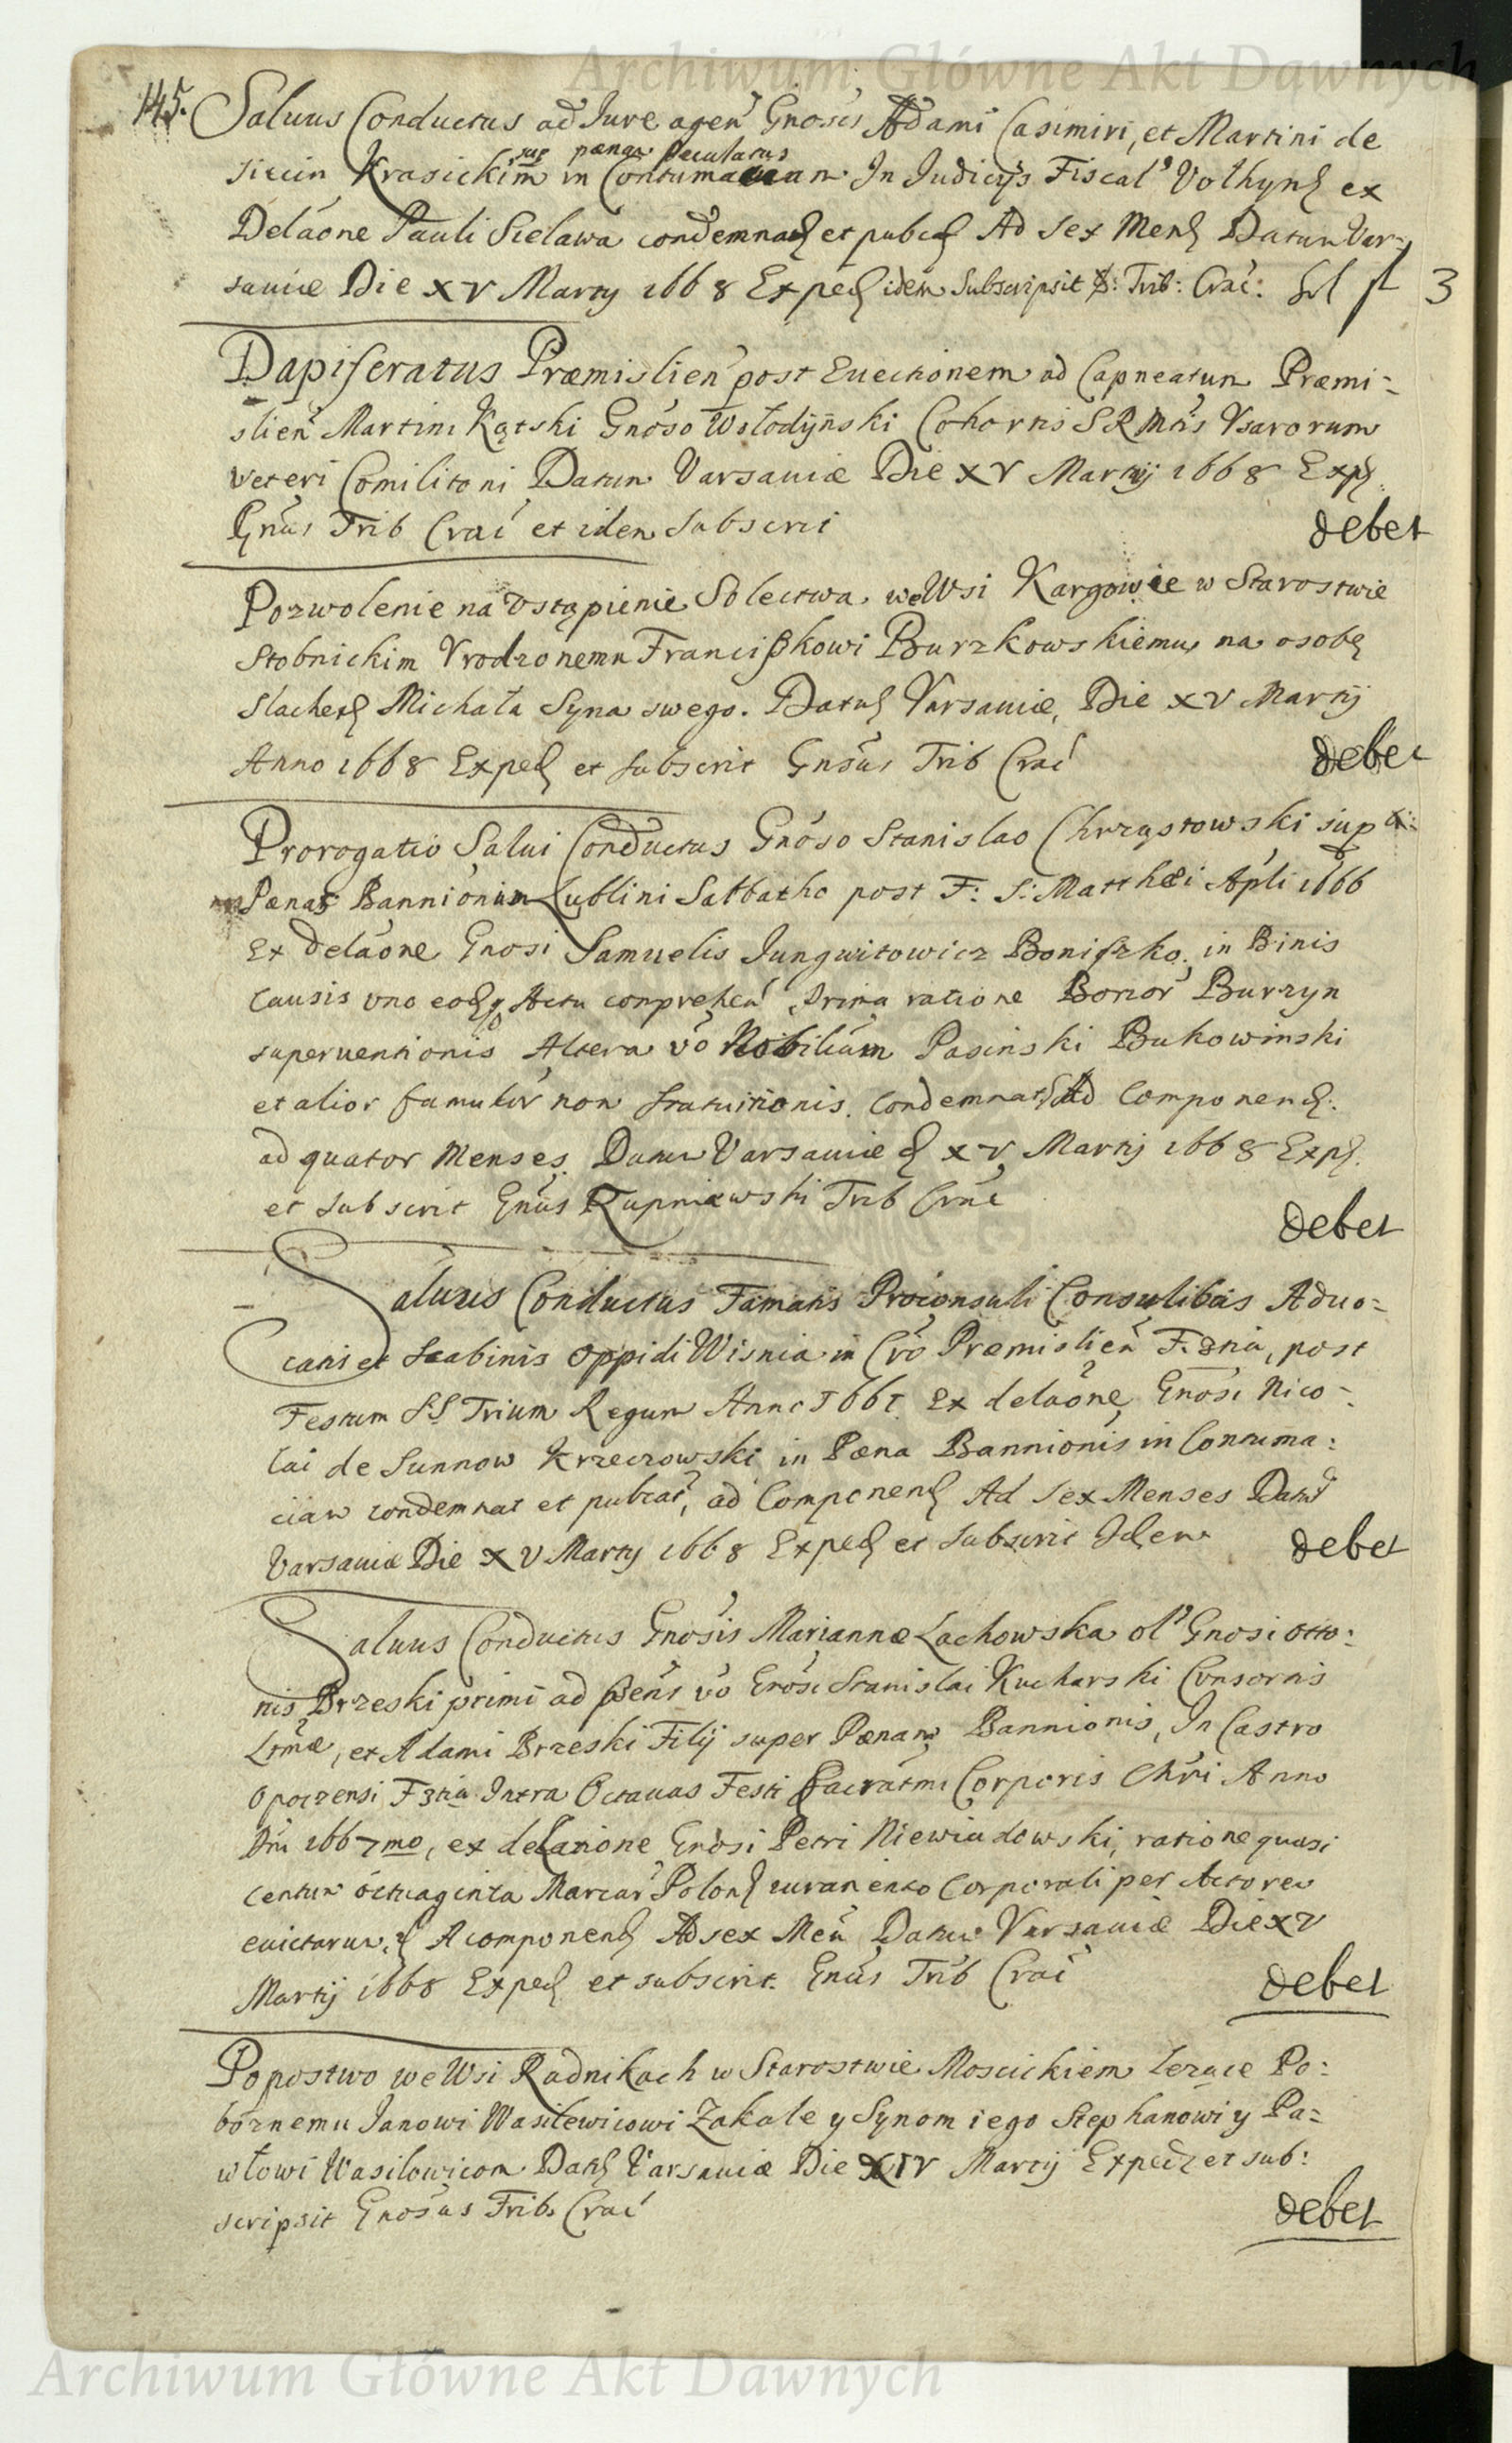 Archiwum Główne Akt Dawnych
145. Saluus Conductus ad Jure agen Gnosis Adami Casimiri, et Martini de
sup paenam Peculatus
Siecin Krasickim in Contumaciam In Judicijs Fiscal Volhyn ex
Delaone Pauli Sielawa condemnat et publicat Ad sex Mens Datum Var-
saviae Die XV Martij 1668 Exped idem Subscripsit S: Trib: Crac: Sol fl 3
Dapiferatus Præmislien post Euectionem ad Capneatum Præmi-
slien Martini Kątski Gnoso Wołodyński Cohortis SRMtis Vsarorum
veteri Comilitoni Datum Varsaviæ Die XV Martij 1668 Exped
Gnus Trib Crac et idem subscrit debet
Pozwolenie na Vstąpienie Solectwa we Wsi Kargowie w Starostwie
Stobnickim Vrodzonemu Francißkowi Burzkowskiemu na osobę
Slachet Michała Syna swego. Datum Varsaviæ, Die XV Martij
Anno 1668 Exped et subscrit Gnsus Trib Crac debet
Prorogatio Salui Conductus Gnoso Stanislao Chrząstowski sup
Pænas Bannionum Lublini Sabbatho post F: S: Matthæi Apli 1666
Ex delaone Gnosi Samuelis Jungwitowicz Boniszko in Binis
Causis uno eodq Actu comprehen Prima ratione Bonor Burzyn
superuentionis Altera vo Nobilium Pasinski Bukowinski
et alior famulor non statuitionis condemnat Ad Componend:
ad quator Menses Datum Varsaviæ d XV Martij 1668 Exped
et subscrit Gnus Rupniewski Trib Crac debet
Saluus Conductus Famatis Proconsuli Consulibus Aduo-
catis et Scabinis Oppidi Wisnia in Cro Præmislien F. 2ria, post
Festum SS Trium Regum Anno 1665 Ex delaone Gnosi Nico-
lai de Sunnow Krzeczowski in Pæna Bannionis in Contuma:
ciam condemnat et publicat, ad Componend Ad sex Menses Datum
Varsaviæ Die XV Martij 1668 Exped et Subscrit Idem debet
Saluus Conductus Gnosis Mariannæ Lachowska ol Gnosi Otto:
nis Brzeski primi ad præns vo Gnosi Stanislai Kucharski Consortis
Ltmæ, et Adami Brzeski Filij super Pænam Bannionis, In Castro
Opoczensi F3tia Intra Octauas Festi Sacratmi Corporis Chri Anno
Dni 1667mo, ex delatione Gnosi Petri Niewiadowski, ratione quasi
centum octuaginta Marcar Polon iuramento Corporali per Actorem
euictarum A componend Ad sex Men Datum Varsaviæ Die XV
Martij 1668 Exped et subscrit. Gnus Trib Crac debet
Popostwo we Wsi Radnikach w Starostwie Mosciskiem lezące Po:
boznemu Janowi Wasilewicowi Zakale y Synom iego Stephanowi y Pa-
włowi Wasilowicom Datum Varsaviæ Die XIV Martij Exped et sub:
scripsit Gnosus Trib. Crac debet
Archiwum Główne Akt Dawnych